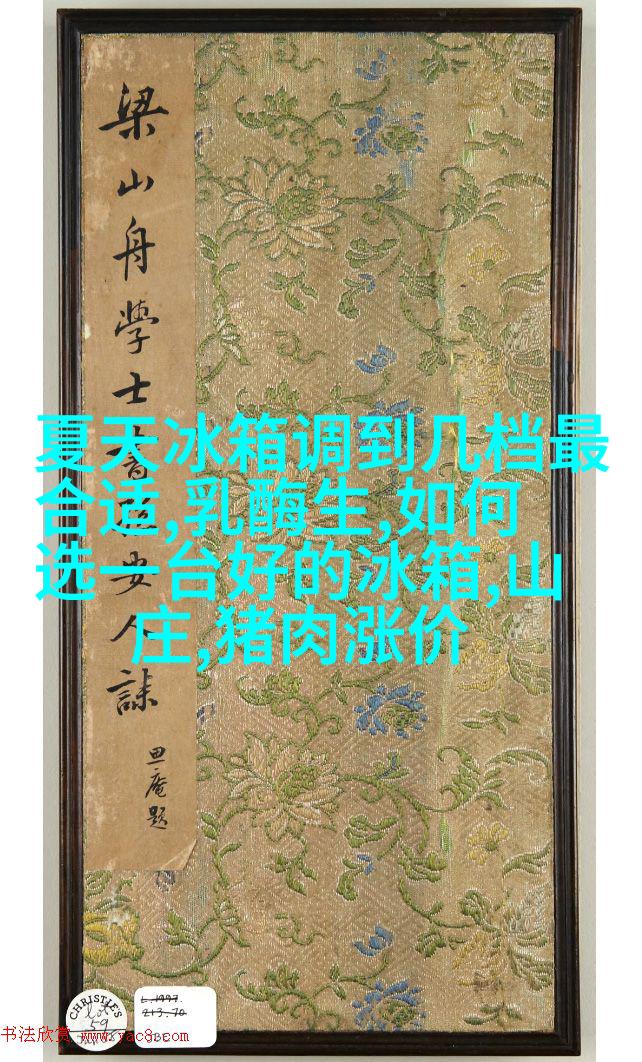 梁山舟學士書安人誄
庵題
夏天冰箱调到几档最
合适,乳酶生,如何
选一台好的冰箱,山
庄,猪肉涨价
CHRISTIE'S
lot
59
L.1997.
213.70
书法欣赏 www.yac8.com